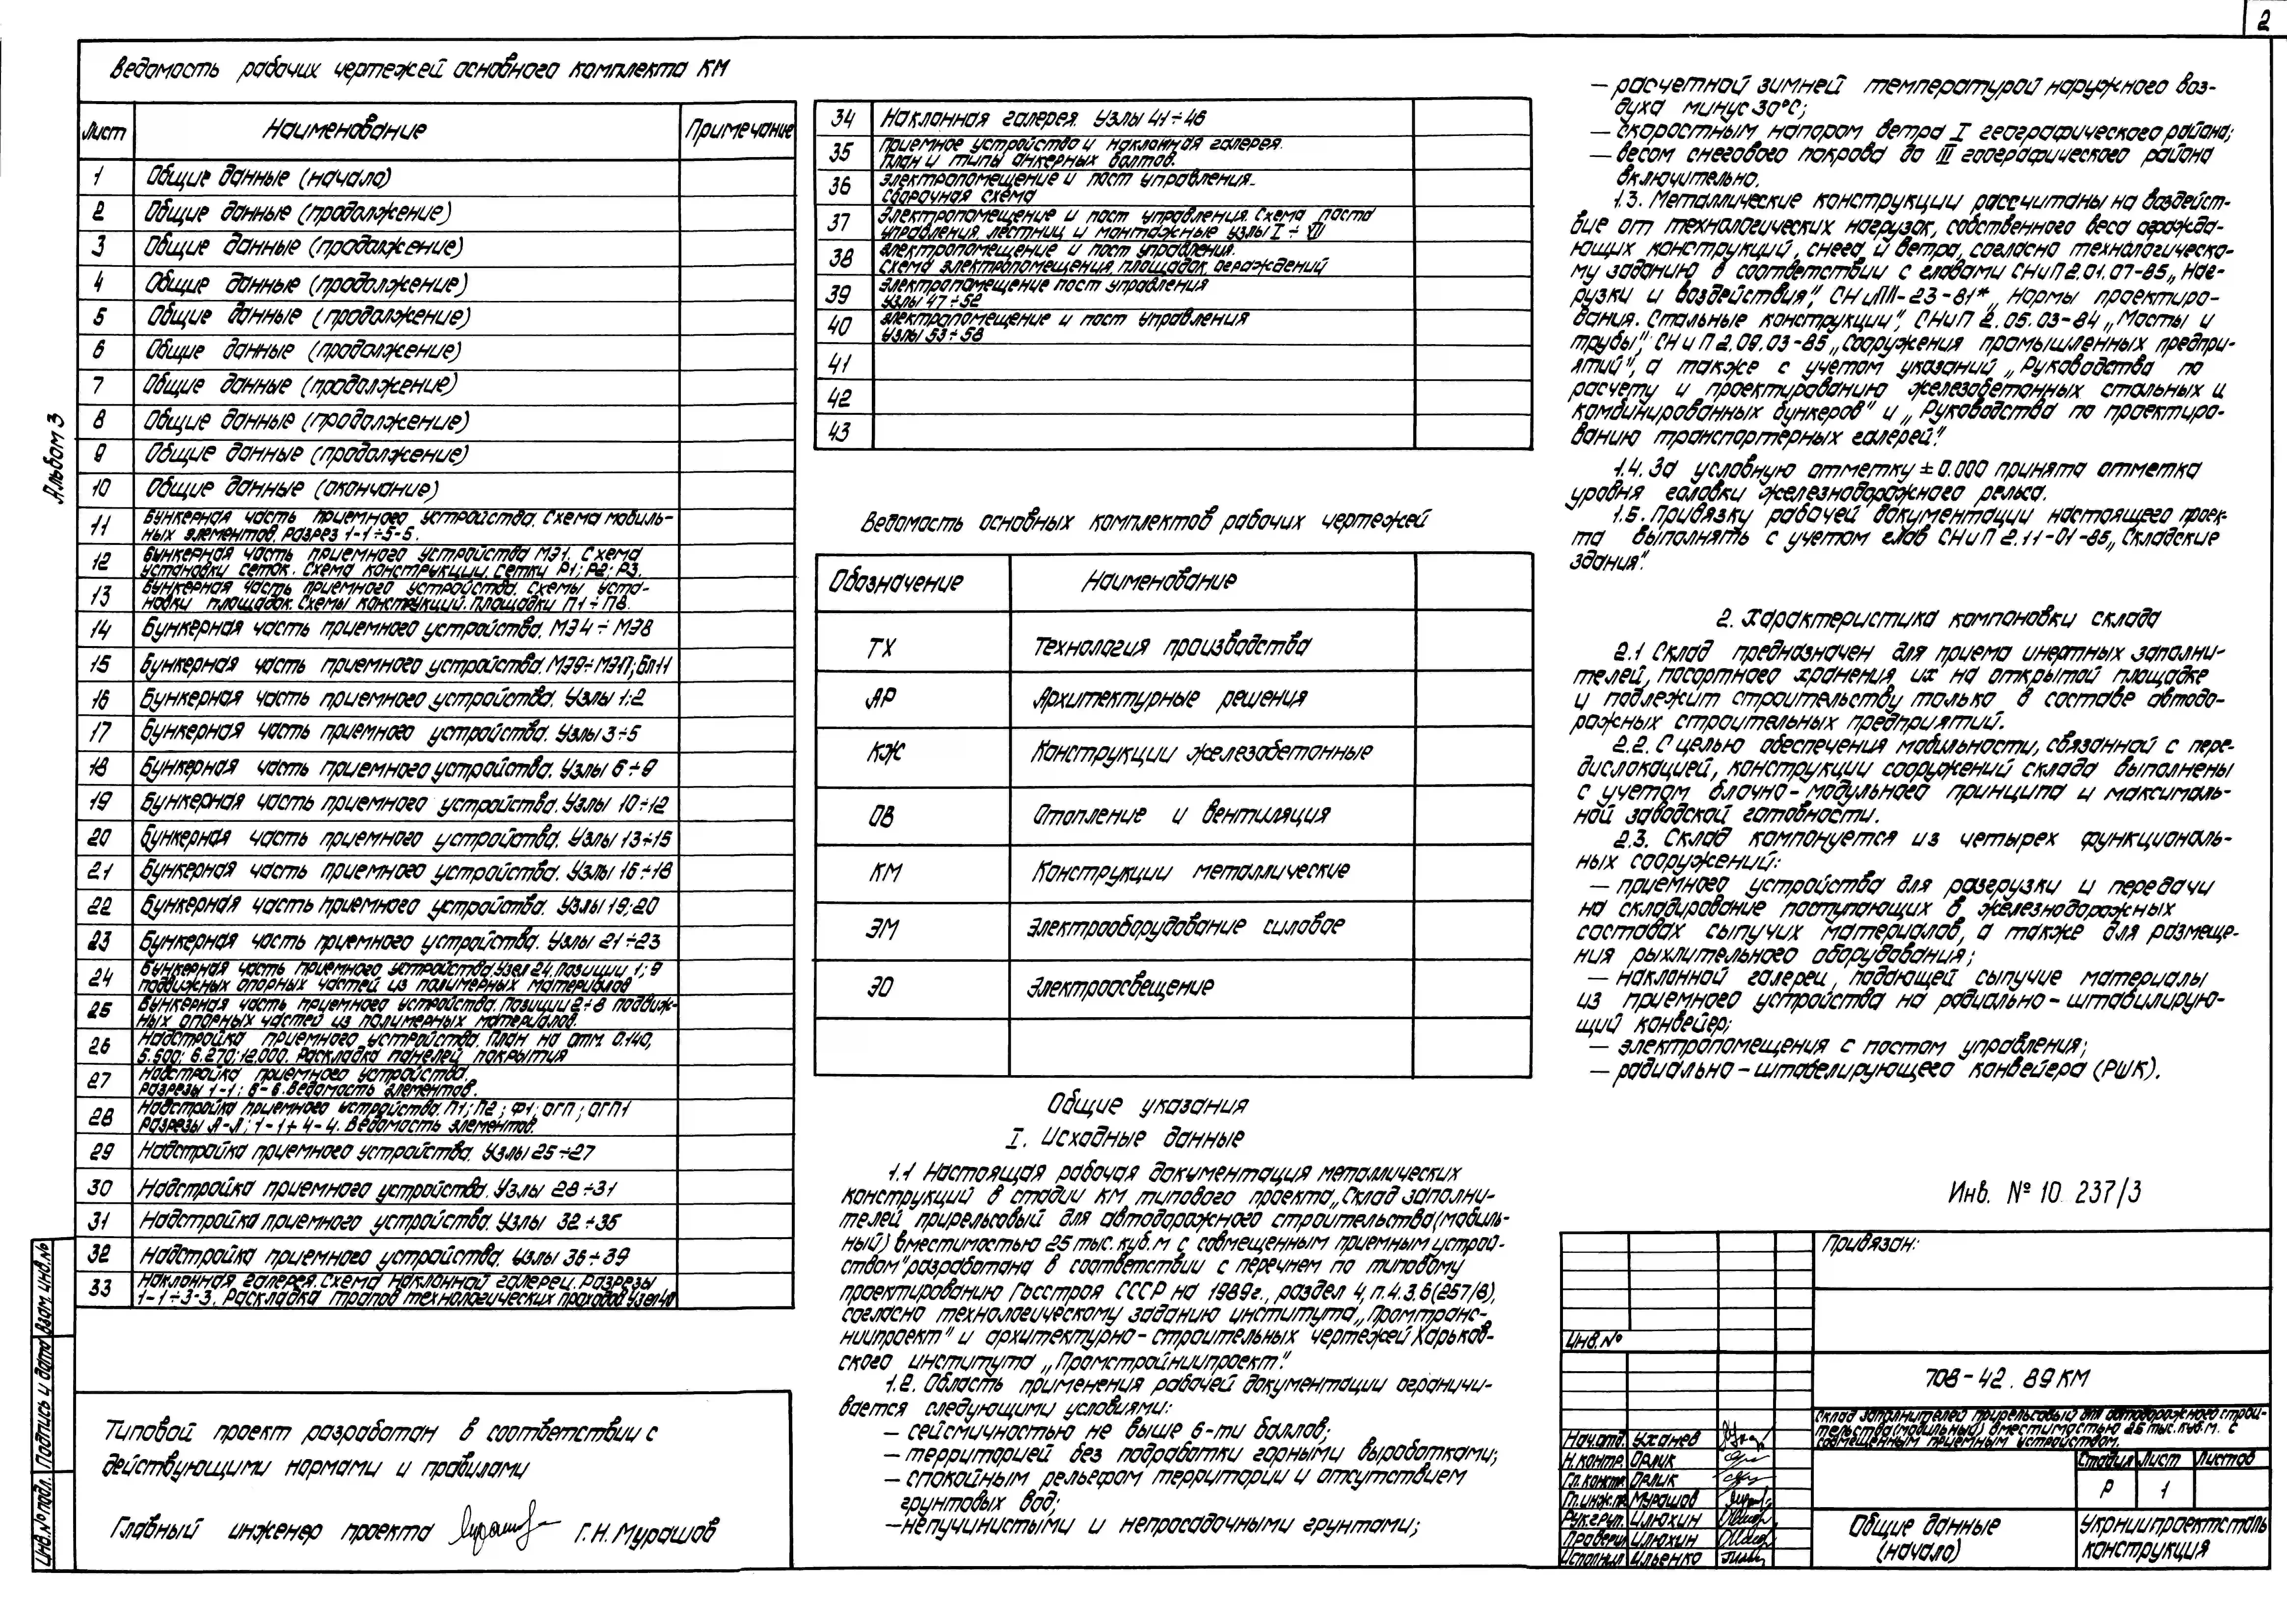 2
Альбом 3
Ведомость рабочих чертежей основного комплекта КМ
Лист Наименование Примечание
1 Общие данные (начало)
2 Общие данные (продолжение)
3 Общие данные (продолжение)
4 Общие данные (продолжение)
5 Общие данные (продолжение)
6 Общие данные (продолжение)
7 Общие данные (продолжение)
8 Общие данные (продолжение)
9 Общие данные (продолжение)
10 Общие данные (окончание)
11 Бункерная часть приемного устройства. Схема мобиль-
ных элементов. Разрез 1-1÷5-5.
12 Бункерная часть приемного устройства МЭ1. Схема
установки сеток. Схема конструкции. Сетки Р1; Р2; Р3.
13 Бункерная часть приемного устройства. Схемы уста-
новки площадок. Схемы конструкций. Площадки П1÷П8.
14 Бункерная часть приемного устройства. МЭ4÷МЭ8
15 Бункерная часть приемного устройства. МЭ9÷МЭ11; Бл11
16 Бункерная часть приемного устройства. Узлы 1;2
17 Бункерная часть приемного устройства. Узлы 3÷5
18 Бункерная часть приемного устройства. Узлы 6÷9
19 Бункерная часть приемного устройства. Узлы 10÷12
20 Бункерная часть приемного устройства. Узлы 13÷15
21 Бункерная часть приемного устройства. Узлы 16÷18
22 Бункерная часть приемного устройства. Узлы 19;20
23 Бункерная часть приемного устройства. Узлы 21÷23
24 Бункерная часть приемного устройства. Узел 24. Позиции 1; 9
подвижных опорных частей из полимерных материалов
25 Бункерная часть приемного устройства. Позиции 2÷8 подвиж-
ных опорных частей из полимерных материалов.
26 Надстройка приемного устройства. План на отм. 0.140,
5.500; 6.270; 12.000. Раскладка панелей покрытия
27 Надстройка приемного устройства.
Разрезы 1-1; 6-6. Ведомость элементов.
28 Надстройка приемного устройства. П1; П2; Ф1; ОГП; ОГП1
Разрезы А-А; 1-1÷4-4. Ведомость элементов.
29 Надстройка приемного устройства. Узлы 25÷27
30 Надстройка приемного устройства. Узлы 28÷31
31 Надстройка приемного устройства. Узлы 32÷35
32 Надстройка приемного устройства. Узлы 36÷39
33 Наклонная галерея. Схема наклонной галереи. Разрезы
1-1÷3-3. Раскладка трапов технологических проходов. Узел 40
Типовой проект разработан в соответствии с
действующими нормами и правилами
Главный инженер проекта Г.Н. Мурашов
Инв.№подл. Подпись и дата Взам. инв.№
34 Наклонная галерея. Узлы 41÷46
35 Приемное устройство и наклонная галерея.
План и типы анкерных болтов.
36 Электропомещение и пост управления.
Сборочная схема
37 Электропомещение и пост управления. Схема поста
управления, лестниц и монтажные узлы I÷VII
38 Электропомещение и пост управления.
Схема электропомещения, площадок, ограждений
39 Электропомещение пост управления
Узлы 47÷52
40 Электропомещение и пост управления
Узлы 53÷58
41
42
43
Ведомость основных комплектов рабочих чертежей
Обозначение Наименование
ТХ Технология производства
АР Архитектурные решения
КЖ Конструкции железобетонные
ОВ Отопление и вентиляция
КМ Конструкции металлические
ЭМ Электрооборудование силовое
ЭО Электроосвещение
Общие указания
I. Исходные данные
1.1 Настоящая рабочая документация металлических
конструкций в стадии КМ типового проекта „Склад заполни-
телей прирельсовый для автодорожного строительства (мобиль-
ный) вместимостью 25 тыс. куб. м с совмещенным приемным устрой-
ством" разработана в соответствии с перечнем по типовому
проектированию Госстроя СССР на 1989г., раздел 4, п.4.3.6(257/8),
согласно технологическому заданию института „Промтранс-
ниипроект" и архитектурно-строительных чертежей Харьков-
ского института „Промстройниипроект".
1.2. Область применения рабочей документации ограничи-
вается следующими условиями:
— сейсмичностью не выше 6-ти баллов;
— территорией без подработки горными выработками;
— спокойным рельефом территории и отсутствием
грунтовых вод;
— непучинистыми и непросадочными грунтами;
— расчетной зимней температурой наружного воз-
духа минус 30°С;
— скоростным напором ветра I географического района;
— весом снегового покрова до III гоографического района
включительно.
1.3. Металлические конструкции рассчитаны на воздейст-
вие от технологических нагрузок, собственного веса огражда-
ющих конструкций, снега и ветра, согласно технологическо-
му заданию в соответствии с главами СНиП 2.01.07-85 „Наг-
рузки и воздействия", СНиП II-23-81* „Нормы проектиро-
вания. Стальные конструкции", СНиП 2.05.03-84 „Мосты и
трубы", СНиП 2.09.03-85 „Сооружения промышленных предпри-
ятий", а также с учетом указаний „Руководства по
расчету и проектированию железобетонных стальных и
комбинированных бункеров" и „Руководства по проектиро-
ванию транспортерных галерей".
1.4. За условную отметку ±0.000 принята отметка
уровня головки железнодорожного рельса.
1.5. Привязку рабочей документации настоящего проек-
та выполнять с учетом глав СНиП 2.11-01-85 „Складские
здания".
2. Характеристика компоновки склада
2.1 Склад предназначен для приема инертных заполни-
телей, посортного хранения их на открытой площадке
и подлежит строительству только в составе автодо-
рожных строительных предприятий.
2.2. С целью обеспечения мобильности, связанной с пере-
дислокацией, конструкции сооружений склада выполнены
с учетом блочно-модульного принципа и максималь-
ной заводской готовности.
2.3. Склад компонуется из четырех функциональ-
ных сооружений:
— приемного устройства для разгрузки и передачи
на складирование поступающих в железнодорожных
составах сыпучих материалов, а также для размеще-
ния рыхлительного оборудования;
— наклонной галереи, подающей сыпучие материалы
из приемного устройства на радиально-штабилирую-
щий конвейер;
— электропомещения с постом управления;
— радиально-штабелирующего конвейера (РШК).
Инв. № 10 237/3
Привязан:
Инв.№
708-42.89 КМ
Склад заполнителей прирельсовый для автодорожного строи-
тельства (мобильный) вместимостью 25 тыс. куб. м. с
совмещенным приемным устройством.
Нач.отд. Уханев
Н.контр. Орлик
Гл.констр. Орлик
Гл.инж.пр. Мурашов
Рук.груп. Илюхин
Проверил Илюхин
Исполнил Ильенко
Стадия Лист Листов
Р 1
Общие данные
(начало)
Укрниипроектсталь
конструкция